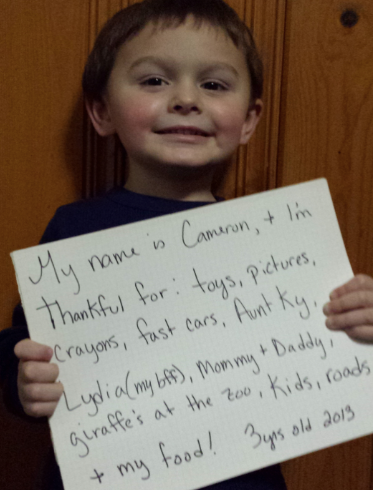 My name is Cameron, + I'm
thankful for: toys, pictures,
crayons, fast cars, Aunt Ky,
Lydia (my bff), Mommy + Daddy,
giraffe's at the zoo, kids, roads
+ my food! 3yrs old 2013